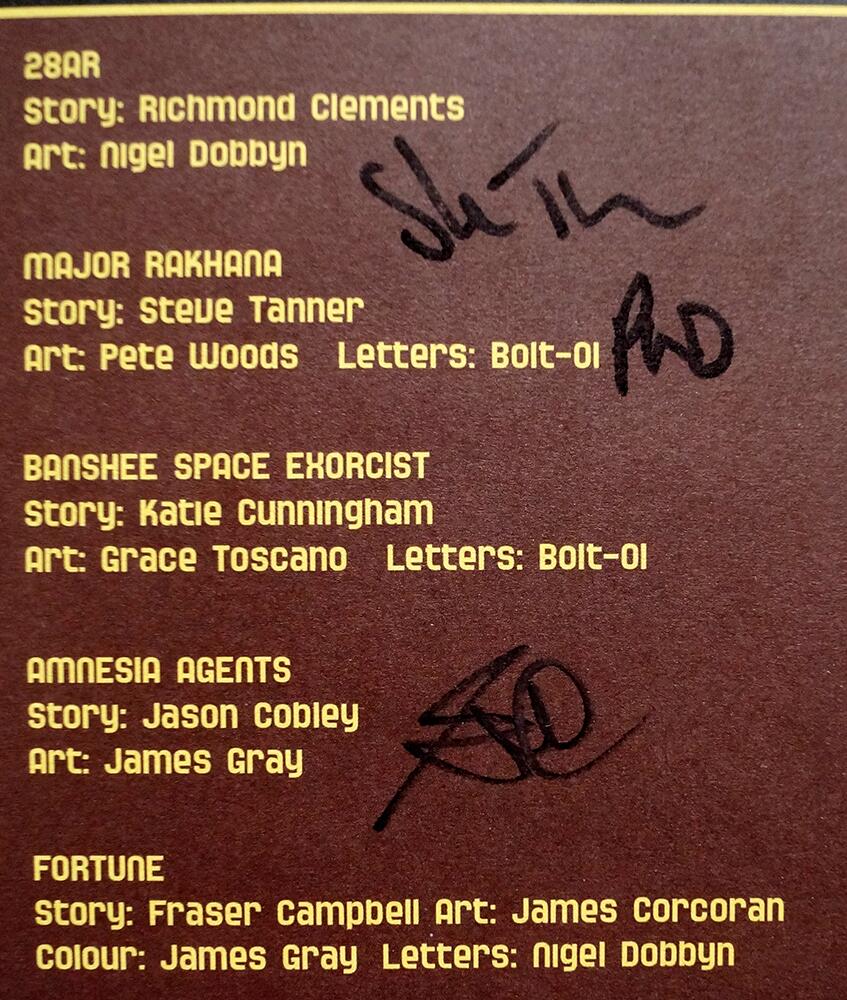 28AR
Story: Richmond Clements
Art: Nigel Dobbyn
MAJOR RAKHANA
Story: Steve Tanner
Art: Pete Woods Letters: Bolt-01
BANSHEE SPACE EXORCIST
Story: Katie Cunningham
Art: Grace Toscano Letters: Bolt-01
AMNESIA AGENTS
Story: Jason Cobley
Art: James Gray
FORTUNE
Story: Fraser Campbell Art: James Corcoran
Colour: James Gray Letters: Nigel Dobbyn